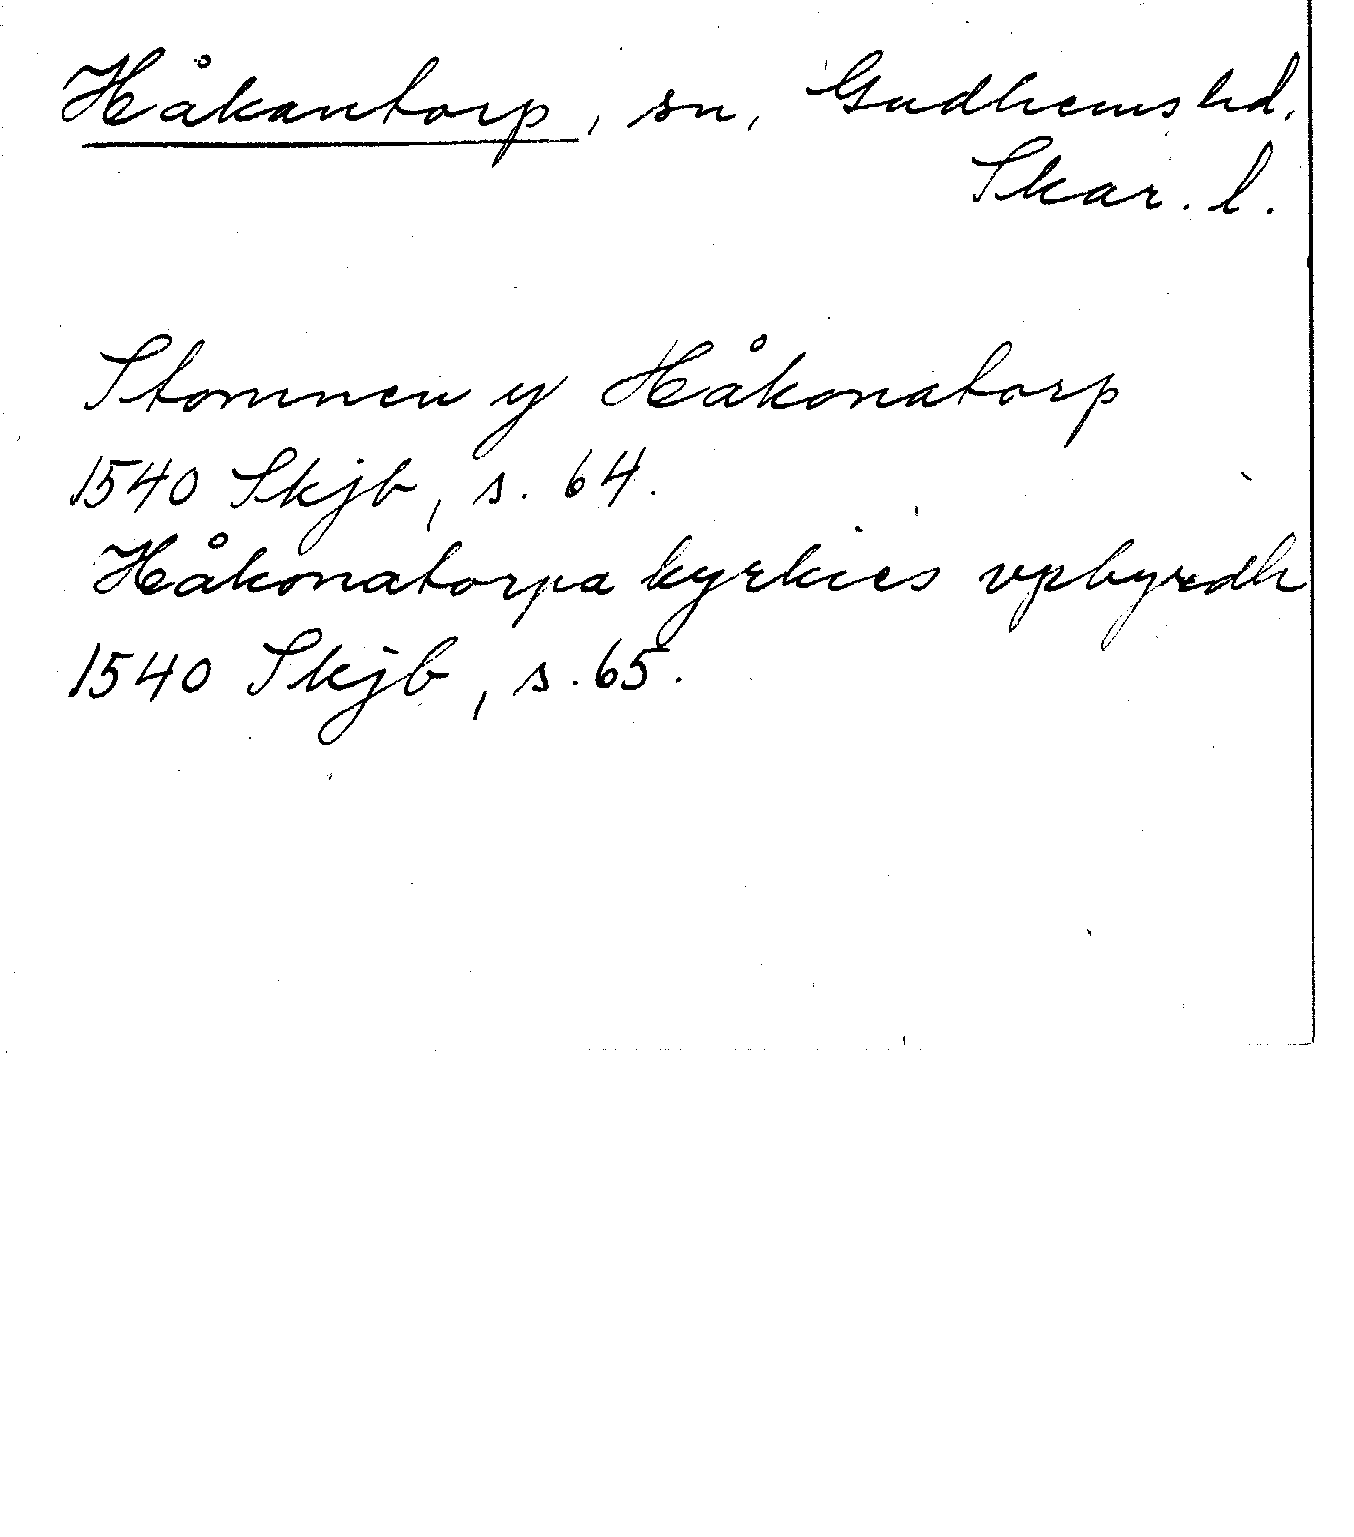 Håkantorp, sn, Gudhems hd.
Skar. l.
Stomnen y Håkonatorp
1540 Skjb, s. 64.
Håkonatorpa kyrkies vpbyrdh
1540 Skjb, s. 65.